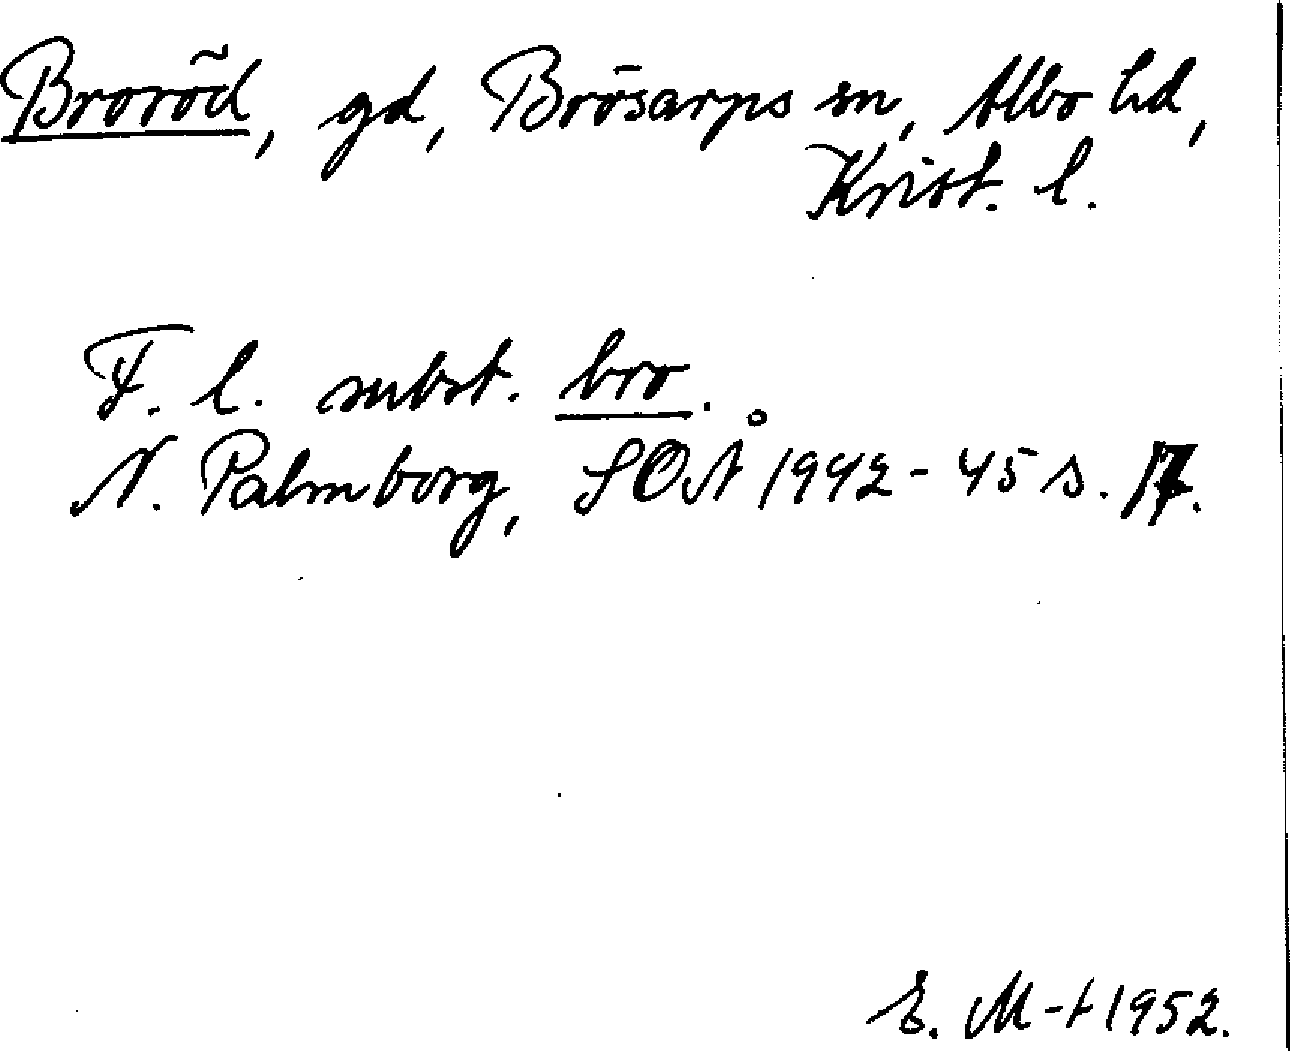 Broröd, gd, Brösarps sn, Albo hd,
Krist. l.
F. l. subst. bro.
N. Palmborg, SOÅ 1942-45 s. 17.
E. M-t 1952.